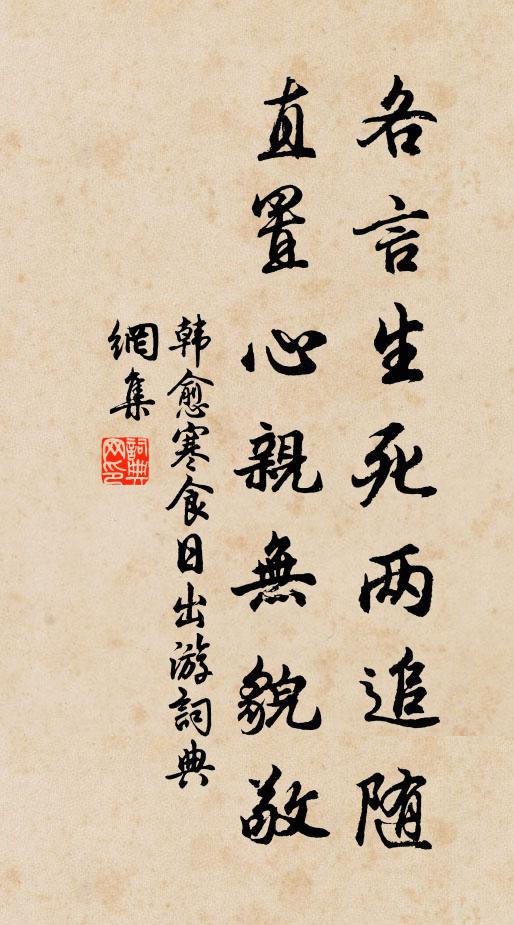 各言生死两追随
直置心親無貌敬
韩愈寒食日出游詞典
網集
詞典网印